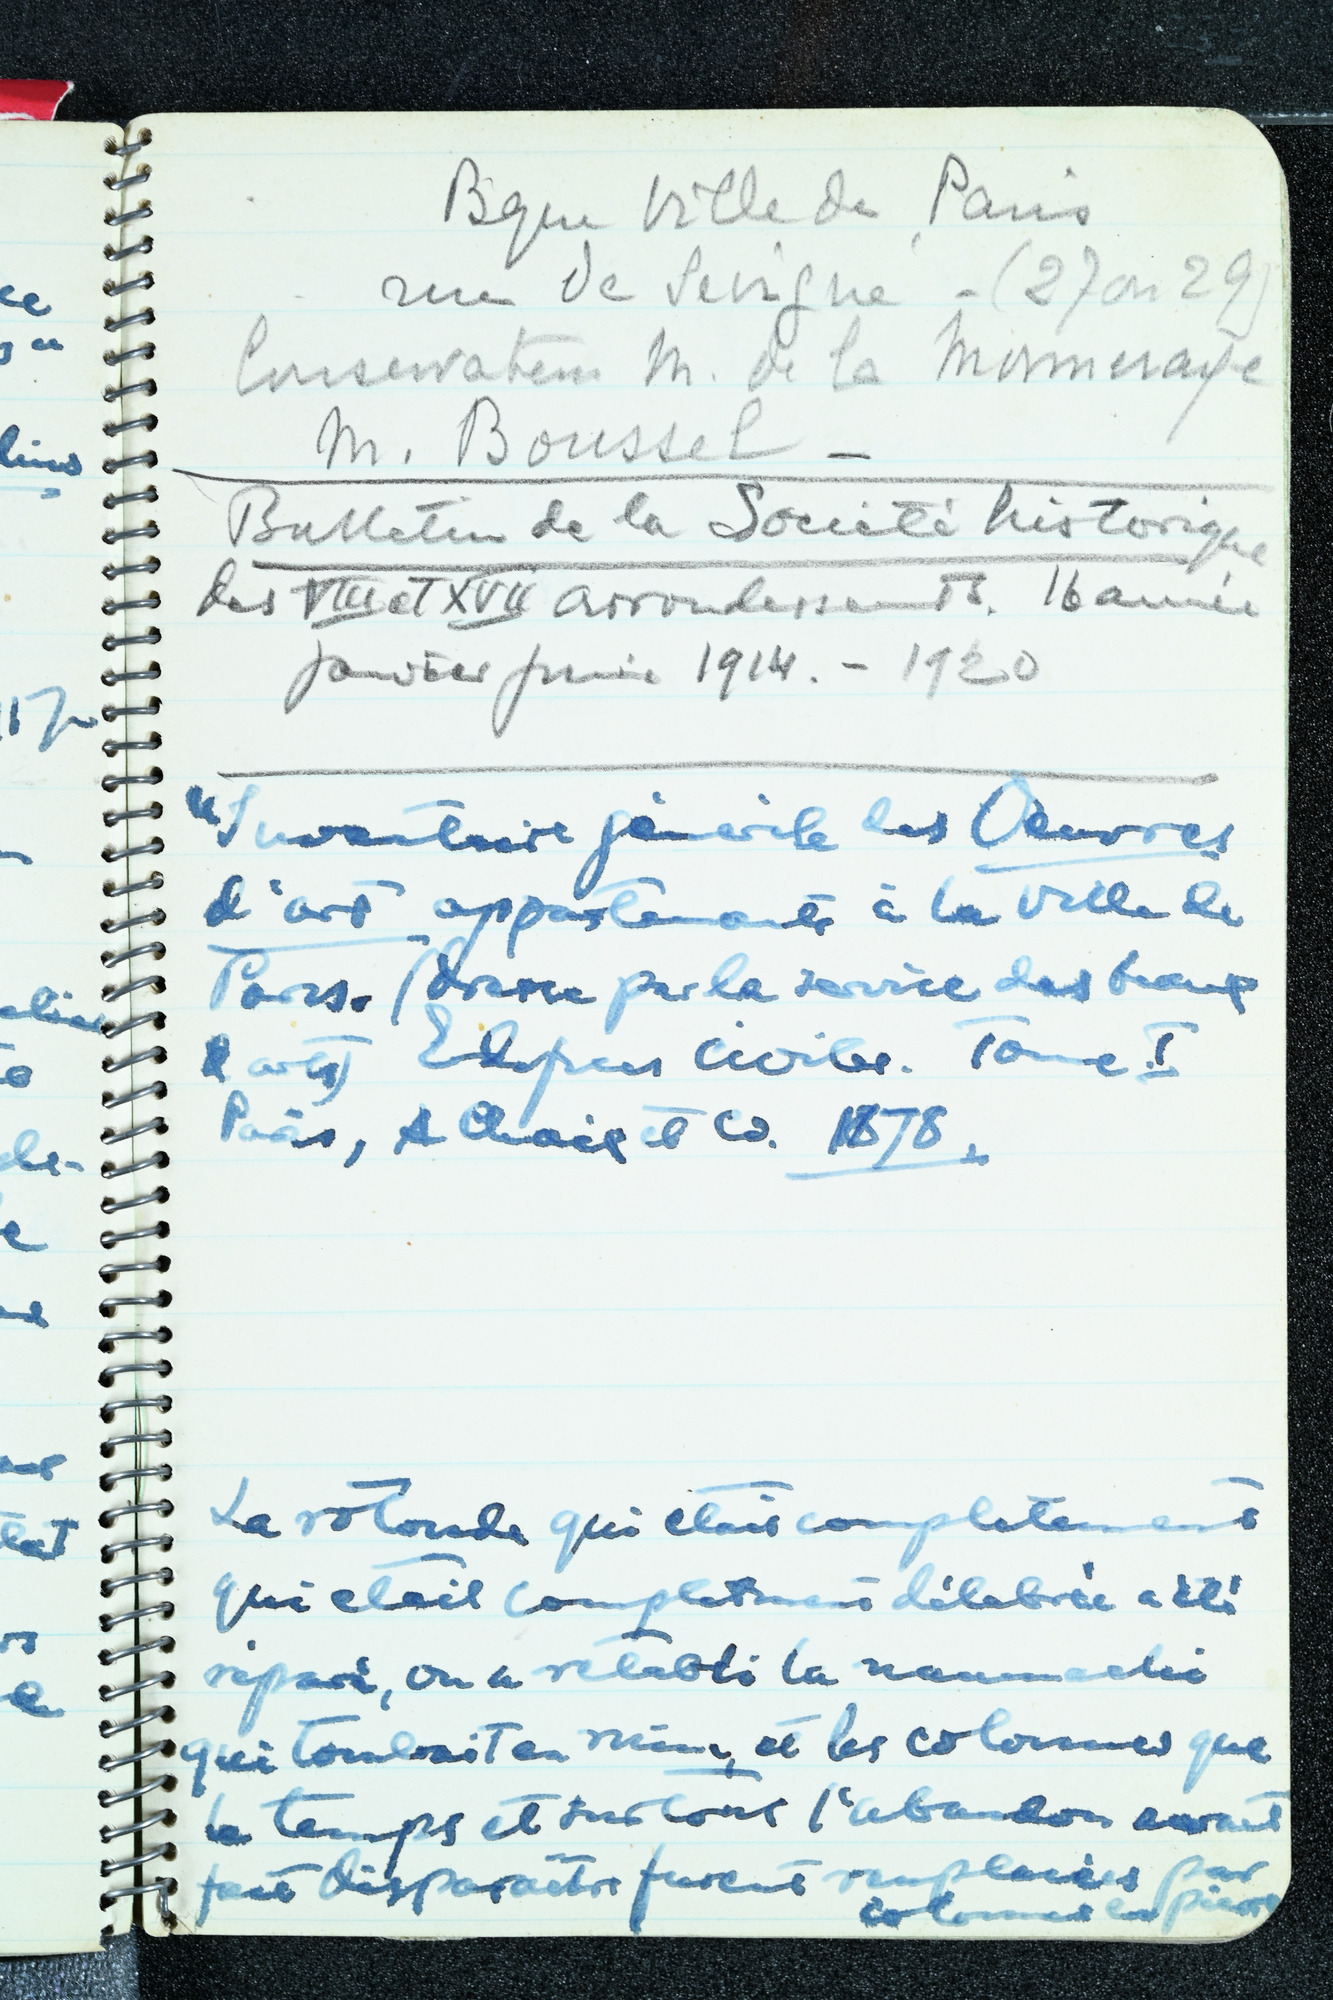 Bque Ville de Paris
rue de Sévigné - (27 ou 29)
Conservateur M. de la Monneraye
M. Boussel -
Bulletin de la Société historique
des VIII et XVII arrondissements. 16 année
janvier juin 1914. - 1920
"Inventaire générale des Oeuvres
d'art appartenants à la Ville de
Paris. (dressé par le service des beaux
arts) Edifices civiles. Tome I
Paris, A Chaix et Co. 1878.
La rotonde qui etait completement
qui etait completment délabrée a été
réparé, on a rétabli la naumachi
qui tombait en ruine, et les colonnes que
le temps et surtout l'abandon avait
fait disparaître furent remplacées par
colonnes en pierre